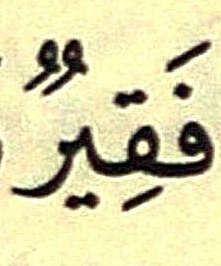 فَقِيرٌ